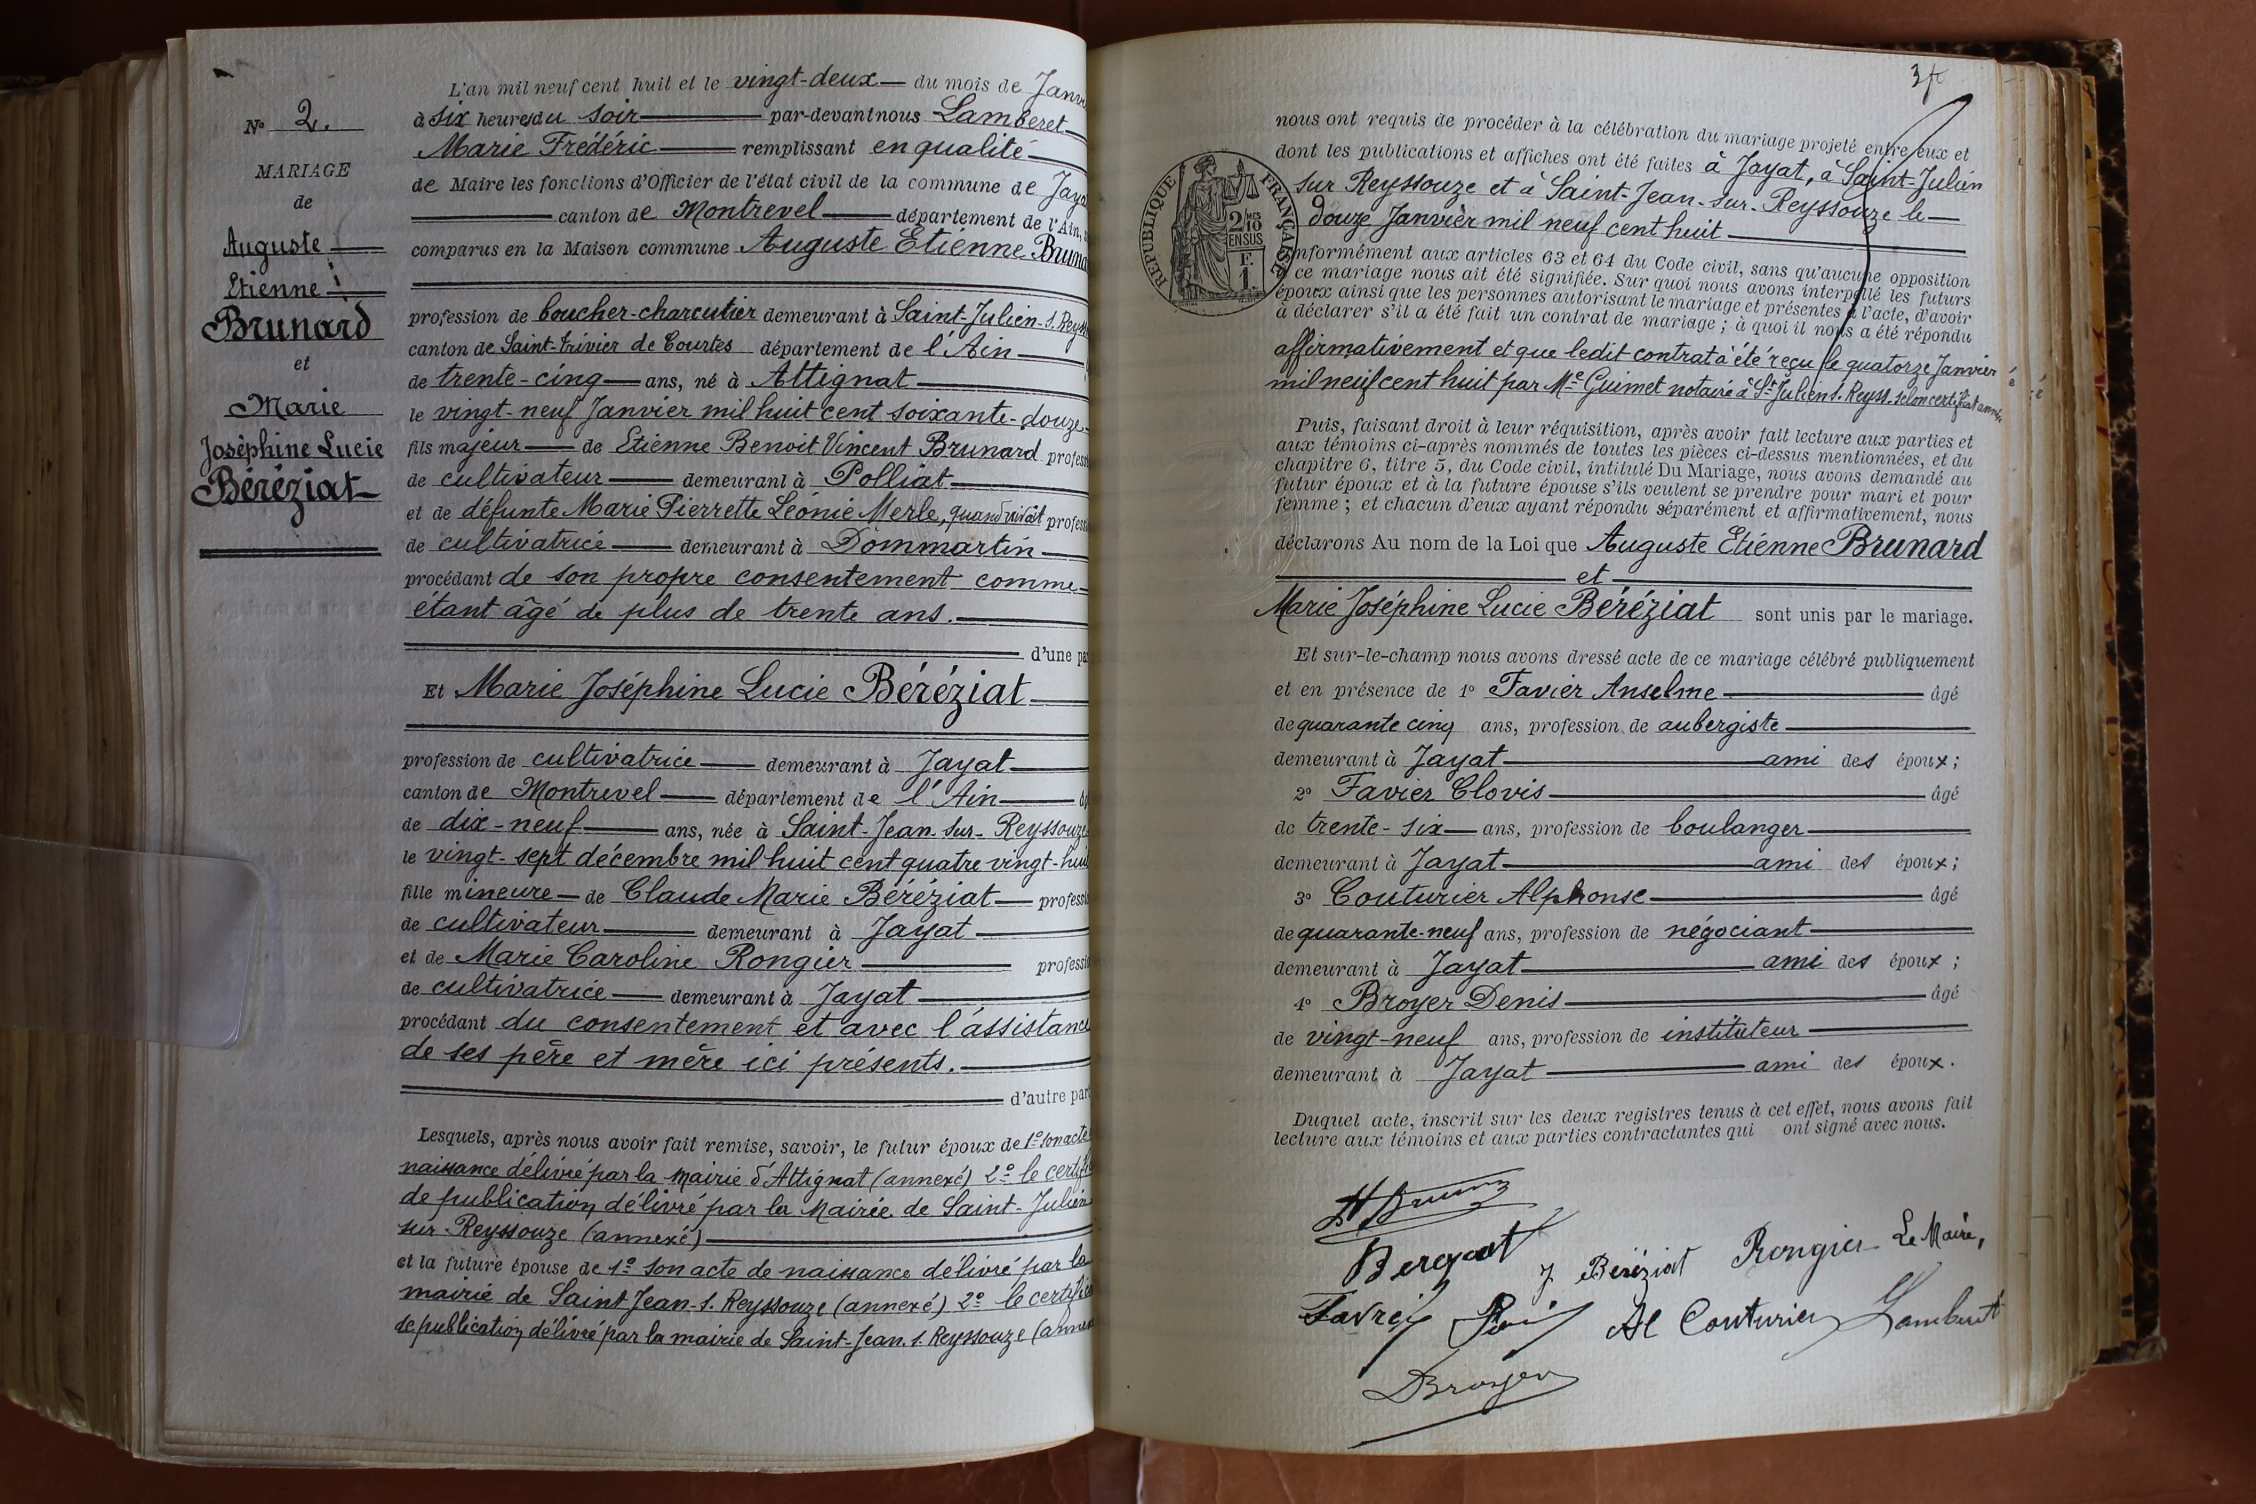 N° 2.
MARIAGE
de
Auguste
Etienne
Brunard
et
Marie
Joséphine Lucie
Béréziat
L'an mil neuf cent huit et le vingt-deux du mois de Janvi
à six heures du soir par-devant nous Lamberet
Marie Frédéric remplissant en qualité
de Maire les fonctions d'Officier de l'état civil de la commune de Jaya
canton de Montrevel département de l'Ain,
comparus en la Maison commune Auguste Etienne Bruna
profession de boucher-charcutier demeurant à Saint-Julien-s. Reyss
canton de Saint-Trivier de Courtes département de l'Ain
de trente-cinq ans, né à Attignat
le vingt-neuf Janvier mil huit cent soixante-douze
fils majeur de Etienne Benoit Vincent Brunard profess
de cultivateur demeurant à Polliat
et de défunte Marie Pierrette Léonie Merle, quand vivait profess
de cultivatrice demeurant à Dommartin
procédant de son propre consentement comme
étant âgé de plus de trente ans.
d'une pa
Et Marie Joséphine Lucie Béréziat
profession de cultivatrice demeurant à Jayat
canton de Montrevel département de l'Ain
de dix-neuf ans, née à Saint-Jean-sur-Reyssouze
le vingt-sept décembre mil huit cent quatre vingt-hui
fille mineure de Claude Marie Béréziat professi
de cultivateur demeurant à Jayat
et de Marie Caroline Rongier professi
de cultivatrice demeurant à Jayat
procédant du consentement et avec l'assistance
de ses père et mère ici présents.
d'autre part
Lesquels, après nous avoir fait remise, savoir, le futur époux de 1° son acte
naissance délivré par la mairie d'Attignat (annexé) 2° le certifi
de publication délivré par la Mairie de Saint-Julien
sur-Reyssouze (annexé)
et la future épouse de 1° son acte de naissance délivré par la
mairie de Saint Jean-s. Reyssouze (annexé) 2° le certific
de publication délivré par la mairie de Saint-Jean. s. Reyssouze (annex
REPUBLIQUE FRANÇAISE
2/10 EN SUS
F. 1.
nous ont requis de procéder à la célébration du mariage projeté entre eux et
dont les publications et affiches ont été faites à Jayat, à Saint-Julien
sur Reyssouze et à Saint-Jean-sur-Reyssouze le
douze Janvier mil neuf cent huit
nformément aux articles 63 et 64 du Code civil, sans qu'aucune opposition
ce mariage nous ait été signifiée. Sur quoi nous avons interpellé les futurs
époux ainsi que les personnes autorisant le mariage et présentes à l'acte, d'avoir
à déclarer s'il a été fait un contrat de mariage ; à quoi il nous a été répondu
affirmativement et que ledit contrat a été reçu le quatorze Janvier
mil neuf cent huit par Me Guimet notaire à St Julien s. Reyss. selon certificat annexé.
Puis, faisant droit à leur réquisition, après avoir fait lecture aux parties et
aux témoins ci-après nommés de toutes les pièces ci-dessus mentionnées, et du
chapitre 6, titre 5, du Code civil, intitulé Du Mariage, nous avons demandé au
futur époux et à la future épouse s'ils veulent se prendre pour mari et pour
femme ; et chacun d'eux ayant répondu séparément et affirmativement, nous
déclarons Au nom de la Loi que Auguste Etienne Brunard
et
Marie Joséphine Lucie Béréziat sont unis par le mariage.
Et sur-le-champ nous avons dressé acte de ce mariage célébré publiquement
et en présence de 1° Favier Anselme âgé
de quarante cinq ans, profession de aubergiste
demeurant à Jayat ami des époux ;
2° Favier Clovis âgé
de trente-six ans, profession de boulanger
demeurant à Jayat ami des époux ;
3° Couturier Alphonse âgé
de quarante-neuf ans, profession de négociant
demeurant à Jayat ami des époux ;
4° Broyer Denis âgé
de vingt-neuf ans, profession de instituteur
demeurant à Jayat ami des époux.
Duquel acte, inscrit sur les deux registres tenus à cet effet, nous avons fait
lecture aux témoins et aux parties contractantes qui ont signé avec nous.
J Béréziat Rongier Le Maire,
Al Couturier Lamberet
Broyer